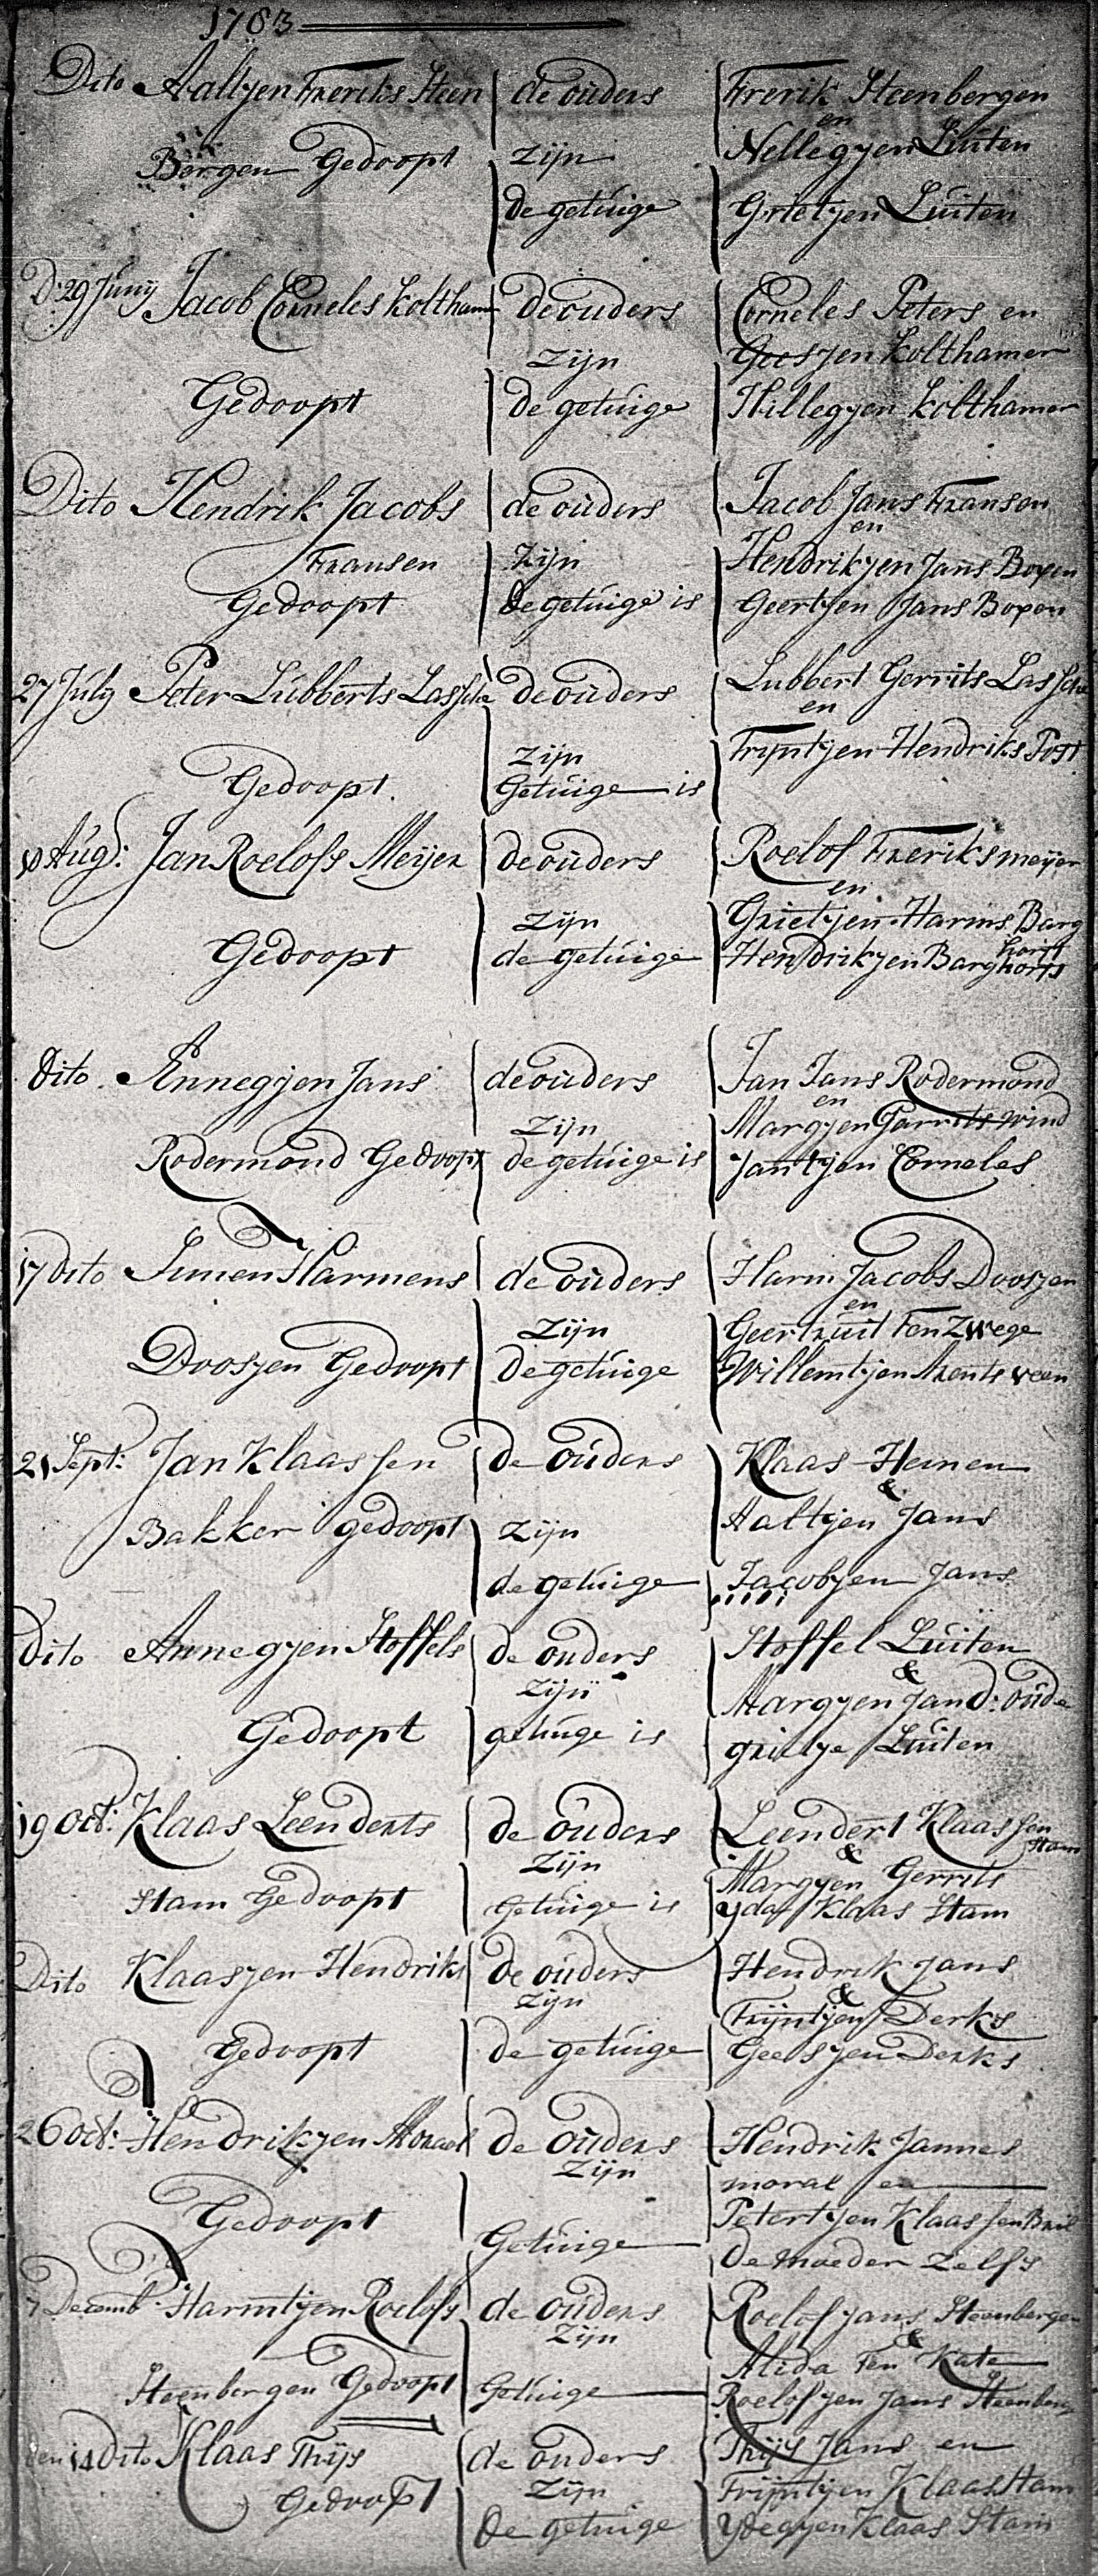 1783
Dito Aaltjen Freriks Steen de ouders Frerik Steenbergen
en
Bergen Gedoopt zijn Hellegyen Luiten
de getuige Grietjen Luiten
D: 29 Junij Jacob Corneles Kolthamer de ouders Corneles Peters en
zijn Geesjen Kolthamer
Gedoopt de getuige Hillegyen Kolthamer
Dito Hendrik Jacobs de ouders Jacob Jans Fransen
en
Fransen zijn Hendrikjen Jans Boxen
Gedoopt de getuige is Geertjen Jans Boxen
27 July Peter Lubberts Lassche de ouders Lubbert Gerrits Lassche
en
zijn Trijntjen Hendriks Post
Gedoopt. Getuige is
10 Aug: Jan Roelofs Meijer de ouders Roelof Freriks meijer
en
zijn Grietjen Harms Barg
horst
Gedoopt de getuige Hendrikjen Barghorst
Dito. Annegjen Jans de ouders Jan Jans Rodermond
en
zijn Margjen Garrits wind
Rodermond Gedoopt de getuige is Jantjen Corneles
17 dito Simen Harmens de ouders Harm Jacobs Doosjen
en
zijn Geertruit Ten Zwege
Doosjen Gedoopt de getuige Willemtjen Arents veen
21 Sept: Jan Klaassen de ouders Klaas Heinen
&
Bakker gedoopt zijn Aaltjen Jans
de getuige Jacobjen Jans
Dito Annegyen Stoffels de ouders Stoffel Luiten
&
zijn Margyen Jan d: oude
Gedoopt getuige is grietje Luiten
19 Oct: Klaas Leenderts de ouders Leendert Klaassen
Stam
&
zijn Margyen Gerrits
Stam Gedoopt Getuige is yda Klaas Stam
Dito Klaasjen Hendriks de ouders Hendrik Jans
&
zijn Trijntjen Derks
Gedoopt de getuige Geesjen Derks
26 oct: Hendrikjen Moraal de ouders Hendrik Jannes
zijn moral en
Gedoopt Petertjen Klaassen Bril
Getuige De moeder zelfs
7 Decemb: Harmtjen Roelofs de ouders Roelof Jans Steenbergen
zijn &
Alida Ten Kate
Steenbergen Gedoopt Getuige Roelofjen Jans Steenberg
den 14 dito Klaas Thijs de ouders Thijs Jans en
zijn Trijntjen Klaas Stam
Gedoopt De getuige Ydegyen Klaas Stam